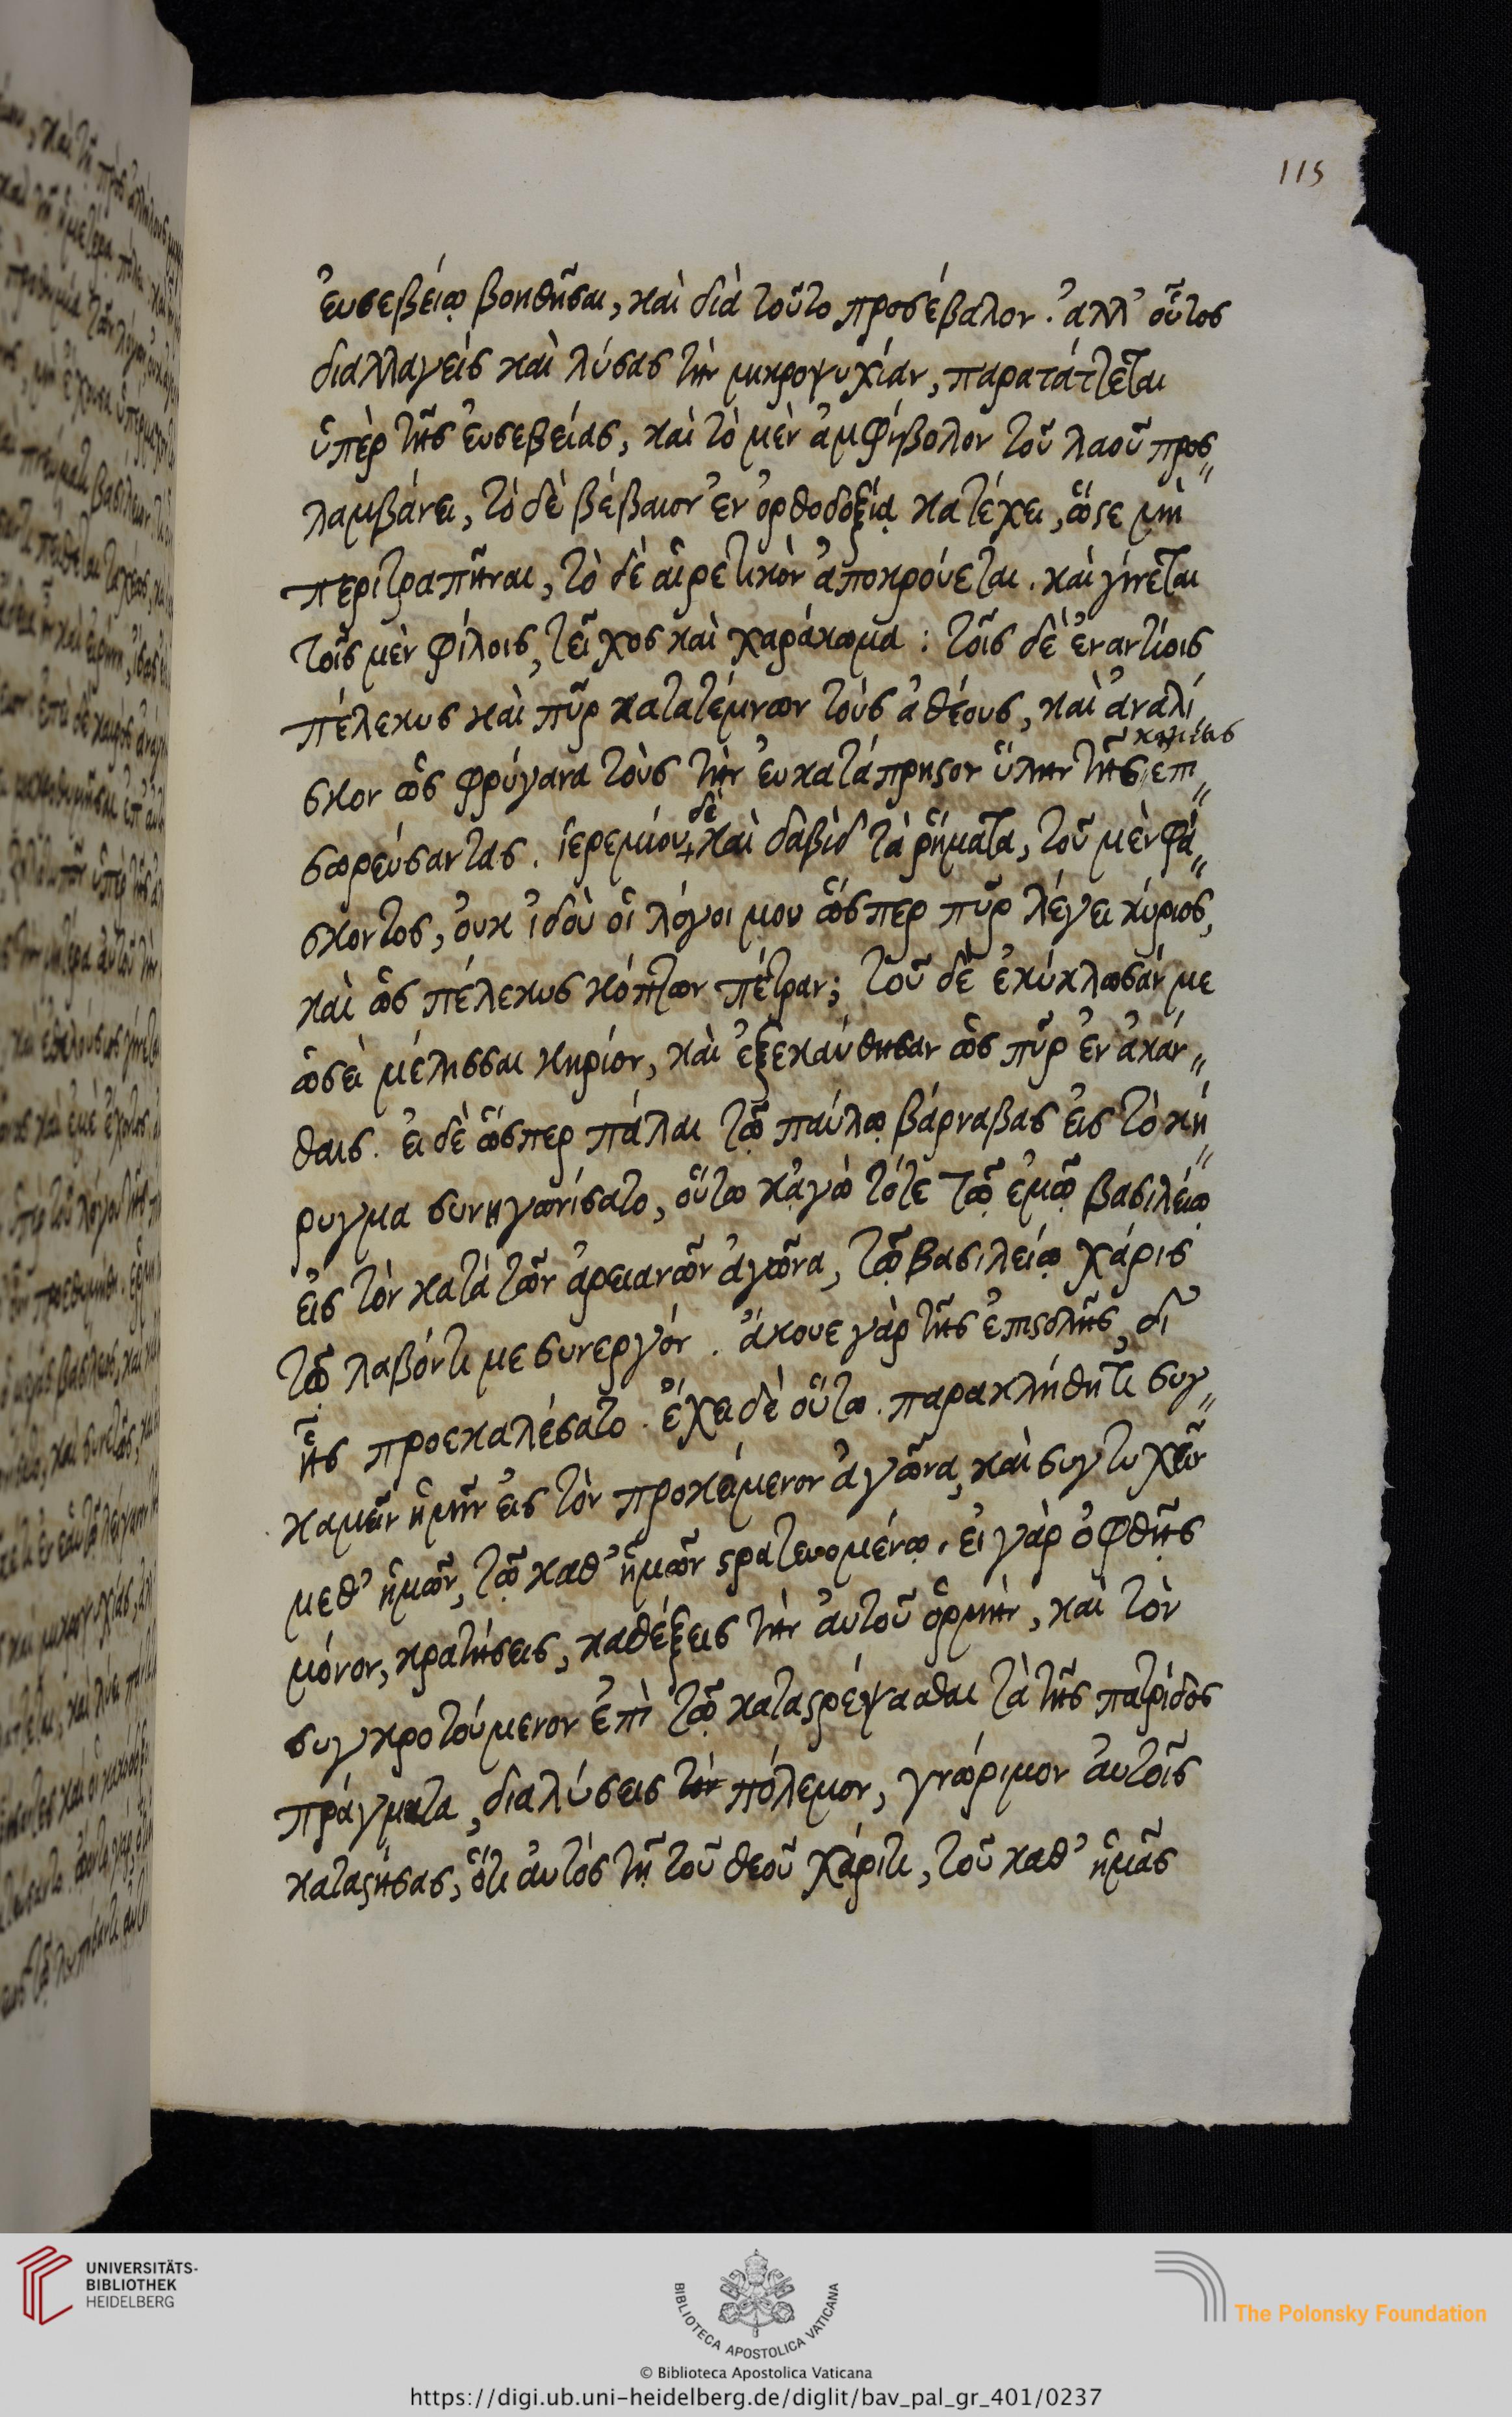 115
εὐσεβείῳ βοηθῆσαι, καὶ διὰ τοῦτο προσέβαλον. ἀλλ' οὗτος
διαλλαγεὶς καὶ λύσας τὴν μικροψυχίαν, παρατάττεται
ὑπὲρ τῆς εὐσεβείας, καὶ τὸ μὲν ἀμφίβολον τοῦ λαοῦ προσ"
λαμβάνει, τὸ δὲ βέβαιον ἐν ὀρθοδοξίᾳ κατέχει, ὥστε μὴ
περιτραπῆναι, τὸ δὲ αἱρετικὸν ἀποκρούεται. καὶ γίνεται
τοῖς μὲν φίλοις, τεῖχος καὶ χαράκωμα: τοῖς δὲ ἐναντίοις
πέλεκυς καὶ πῦρ κατατέμνων τοὺς ἀθέους, καὶ ἀναλί
κακίας
σκον ὡς φρύγανα τοὺς τὴν εὐκατάπρηστον ὕλην τῆς ἐπι"
σωρεύσαντας. ἱερεμίου δὲ καὶ δαβὶδ τὰ ῥήματα, τοῦ μὲν φά"
σκοντος, οὐκ ἰδοὺ οἱ λόγοι μου ὥσπερ πῦρ λέγει κύριος,
καὶ ὡς πέλεκυς κόπτων πέτραν; τοῦ δὲ ἐκύκλωσάν με
ὡσεὶ μέλισσαι κηρίον, καὶ ἐξεκαύθησαν ὡς πῦρ ἐν ἀκάν"
θαις. εἰ δὲ ὥσπερ πάλαι τῷ παύλῳ βάρναβας εἰς τὸ κή"
ρυγμα συνηγωνίσατο, οὕτω κᾀγὼ τότε τῷ ἐμῷ βασιλείῳ
εἰς τὸν κατὰ τῶν ἀρειανῶν ἀγῶνα, τῷ βασιλείῳ χάρις
τῷ λαβόντι με συνεργόν. ἄκουε γὰρ τῆς ἐπιστολῆς, δι'
ἧς προεκαλέσατο. ἔχει δὲ οὕτω. παρακλήθητι συγ"
καμεῖν ἡμῖν εἰς τὸν προκείμενον ἀγῶνα, καὶ συντυχεῖν
μεθ' ἡμῶν, τῷ καθ' ἡμῶν στρατευομένῳ. εἰ γὰρ ὀφθῇς
μόνον, κρατήσεις, καθέξεις τὴν αὐτοῦ ὁρμὴν, καὶ τὸν
συγκροτούμενον ἐπὶ τῷ καταστρέψασθαι τὰ τῆς πατρίδος
πράγματα, διαλύσεις τὸν πόλεμον, γνώριμον αὐτοῖς
καταστήσας, ὅτι αὐτὸς τῇ τοῦ θεοῦ χάριτι, τοῦ καθ' ἡμᾶς
UNIVERSITÄTS-
BIBLIOTHEK
HEIDELBERG
BIBLIOTECA APOSTOLICA VATICANA
The Polonsky Foundation
© Biblioteca Apostolica Vaticana
https://digi.ub.uni-heidelberg.de/diglit/bav_pal_gr_401/0237